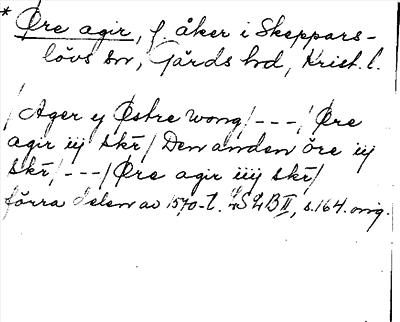 * Øre agir, f. åker i Skeppars-
lövs sn, Gärds hd, Krist. l.
/ Ager y Østre wong /---/ Øre
agir iij skr̄ / Den anden öre iij
skr̄ /---/ Øre agir iiij skr̄ /
förra delen av 1570-t. LSLB II, s. 164. orig.